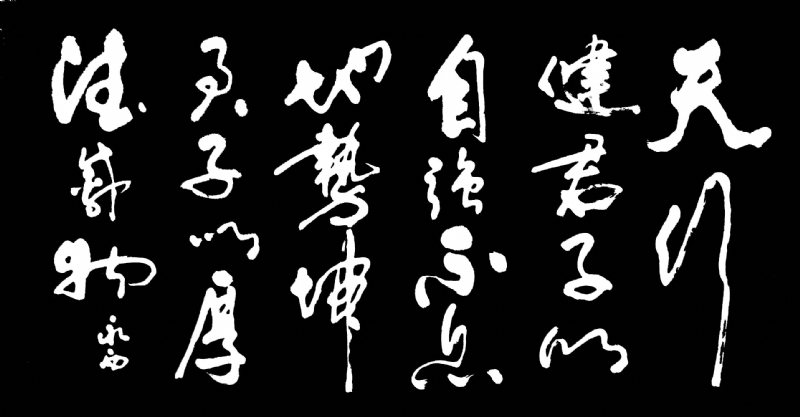 天行
健君子以
自强不息
地势坤
君子以厚
德载物